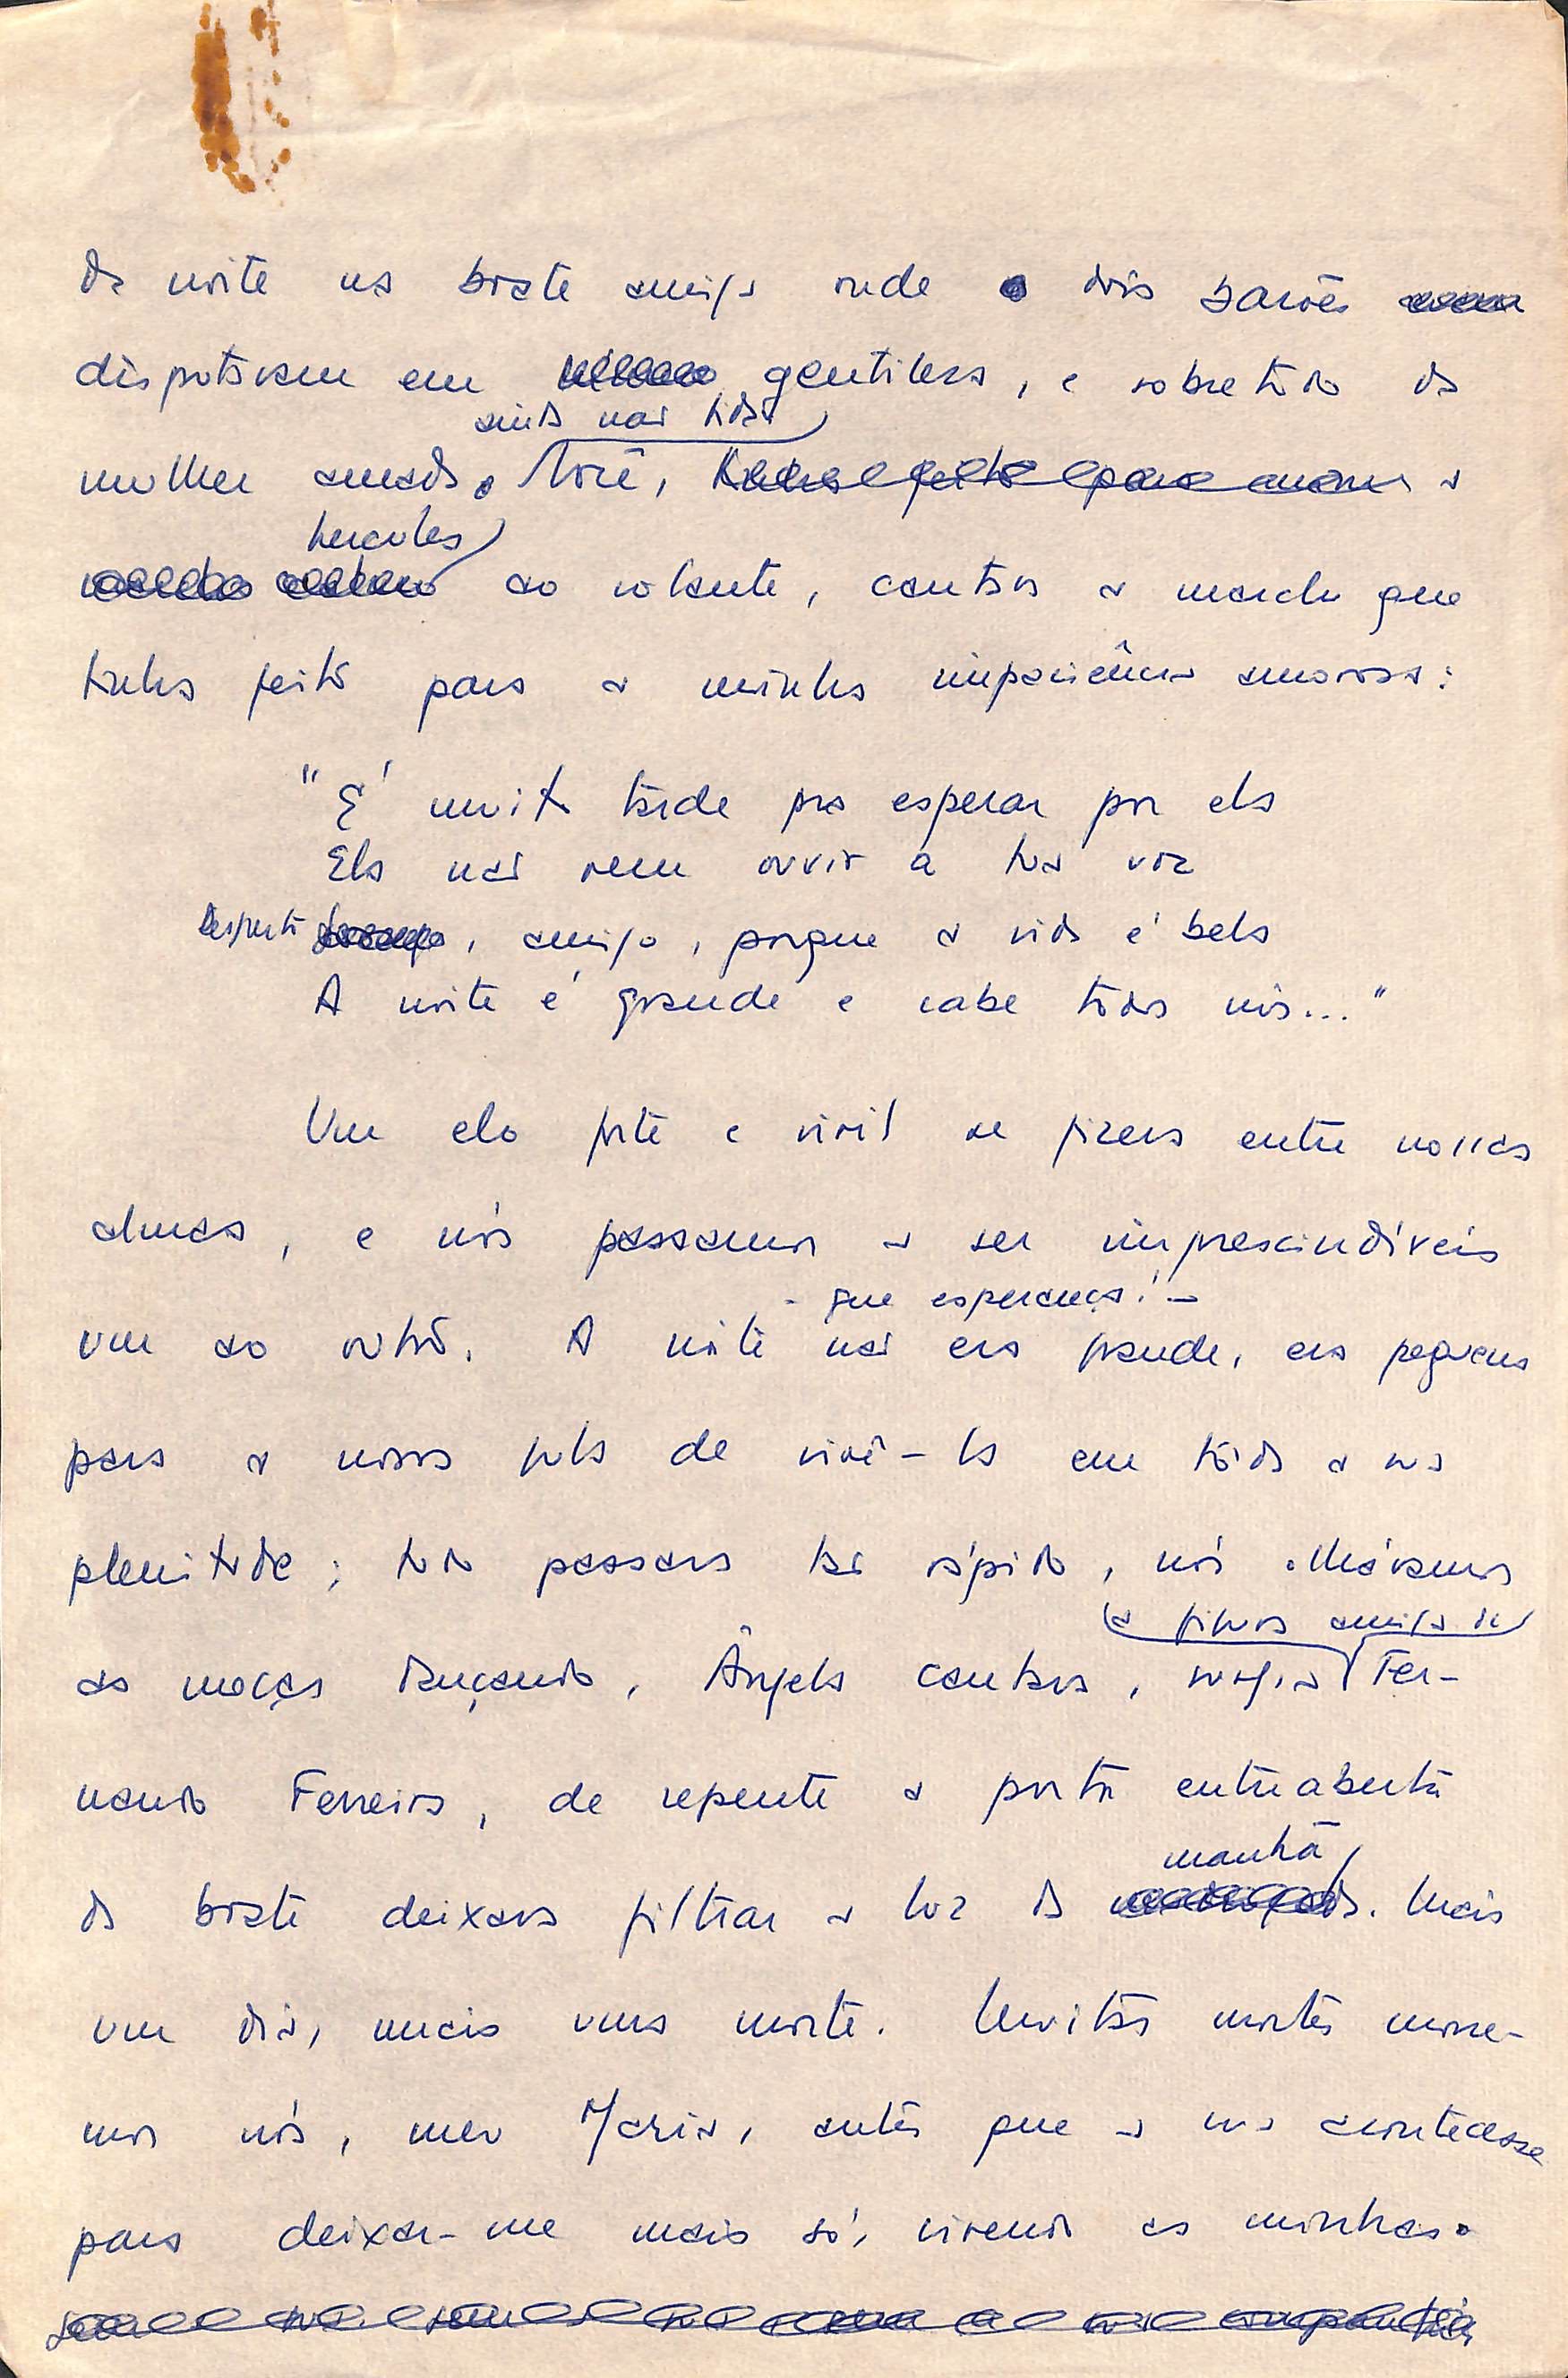 da noite na boate amiga onde dois barões
disputavam em gentileza, e sobretudo da
ainda não tida
mulher amada. Você, a
hercules
ao volante, cantava a marcha que
tinha feito para a minha impaciência amorosa:
"É muito tarde pra esperar por ela
Ela não vem ouvir a tua voz
Desperta, amigo, porque a vida é bela
A noite é grande e cabe todos nós..."
Um elo forte e viril se fizera entre nossas
almas, e nós passamos a ser imprescindíveis
- que esperança! -
um ao outro. A noite não era grande, era pequena
para a nossa gula de vivê-la em tôda a sua
plenitude; tudo passava tão rápido, nós olhávamos
a figura amiga de
as moças dançando, Ângela cantava, surgia Fer-
nando Ferreira, de repente a porta entreaberta
manhã
da boate deixava filtrar a luz da. Mais
um dia, mais uma morte. Muitas mortes morre-
mos nós, meu Maria, antes que a sua acontecesse
para deixar-me mais só, vivendo as minhas.